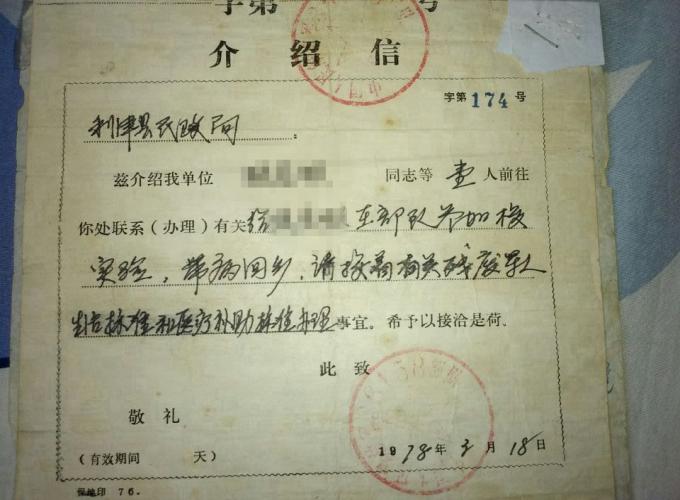 字第 号
介绍信
字第174号
利津县民政局:
兹介绍我单位 同志等 壹 人前往
你处联系(办理)有关给 在部队参加核
实验,带病回乡,请按着有关残废军人
生活标准和医疗补助标准办理事宜。希予以接洽是荷。
此致
敬礼
1978年3月18日
(有效期间 天)
76.